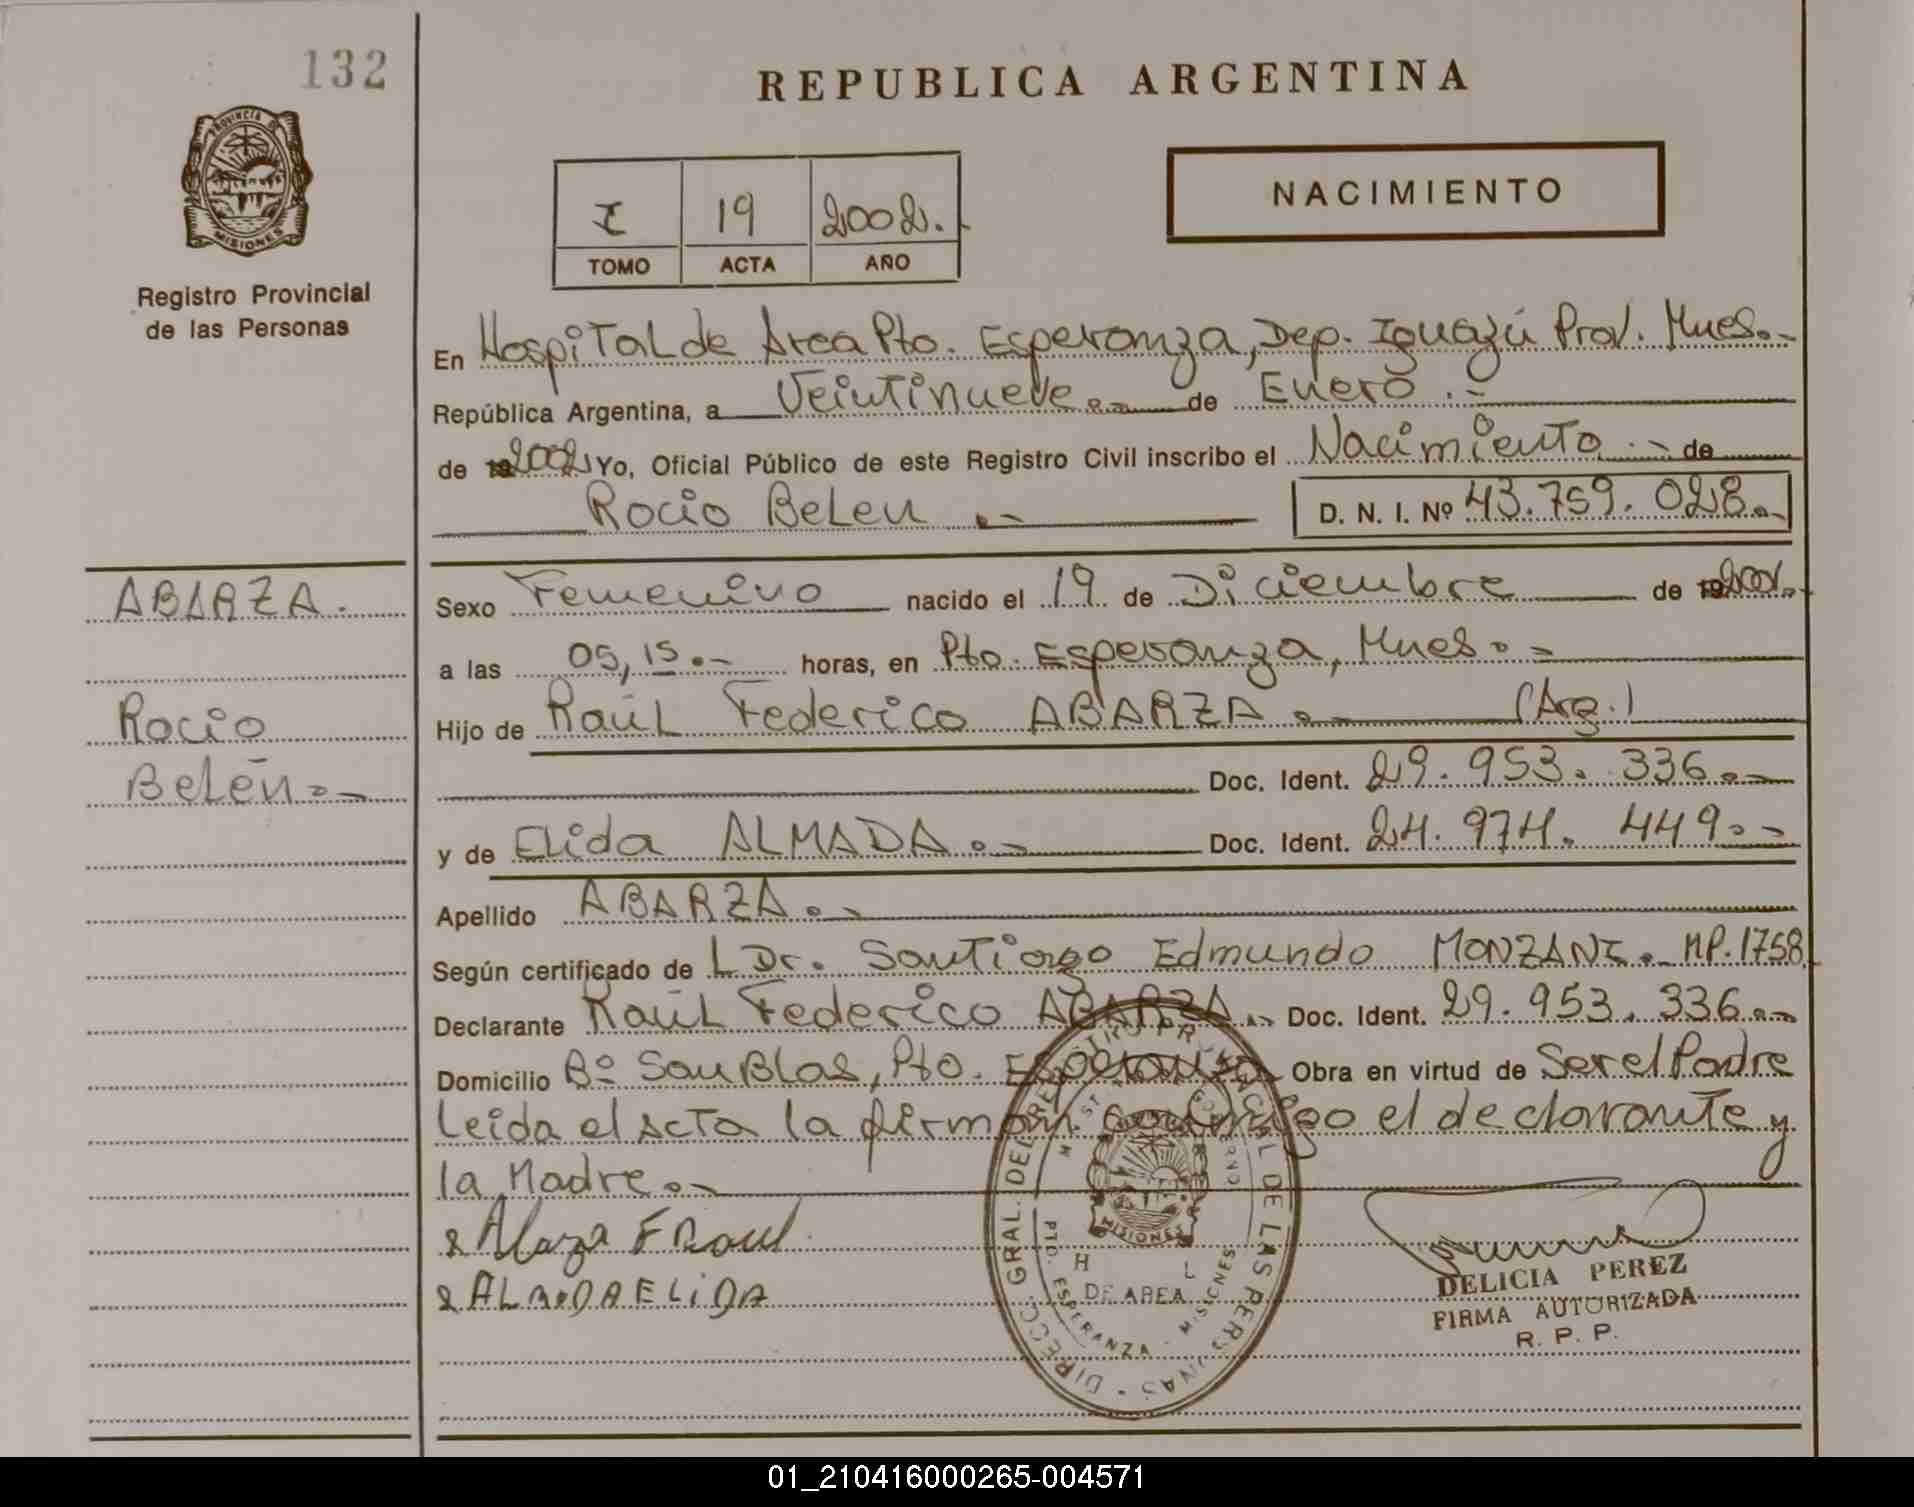 132
REPUBLICA ARGENTINA
PROVINCIA DE
MISIONES
Registro Provincial
de las Personas
I 19 2002.
TOMO ACTA AÑO
NACIMIENTO
En Hospital de Area Pto. Esperanza, Dep. Iguazú Prov. Mnes.-
República Argentina, a Veintinueve.- de Enero.-
de 192002 Yo, Oficial Público de este Registro Civil inscribo el Nacimiento.- de
Rocio Belen.- D. N. I. Nº 43.759.028.-
ABARZA.
Rocio
Belén.-
Sexo Femenino nacido el 19 de Diciembre de 192001.-
a las 05,15.- horas, en Pto. Esperanza, Mnes.-
Hijo de Raúl Federico ABARZA.- (Arg.)
Doc. Ident. 29.953.336.-
y de Elida ALMADA.- Doc. Ident. 24.974.449.-
Apellido ABARZA.-
Según certificado de L Dr. Santiago Edmundo MONZANI.- MP.1758
Declarante Raúl Federico ABARZA.- Doc. Ident. 29.953.336.-
Domicilio Bº San Blas, Pto. Esperanza Obra en virtud de Ser el Padre
Leida el acta la firman conmigo el declarante y
la Madre.-
F Raul
ALMADA ELIDA
DIRECC. GRAL. DEL REGISTRO PROVINCIAL DE LAS PERSONAS
PTO. ESPERANZA - MISIONES
MISIONES
H L
DE AREA
DELICIA PEREZ
FIRMA AUTORIZADA
R. P. P.
01_210416000265-004571